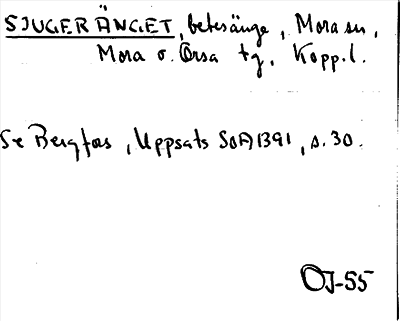 SJUGERÄNGET, betesänge, Mora sn,
Mora o. Orsa tg, Kopp.l.
Se Bergfors, Uppsats SOA 1391, s. 30.
OJ-55